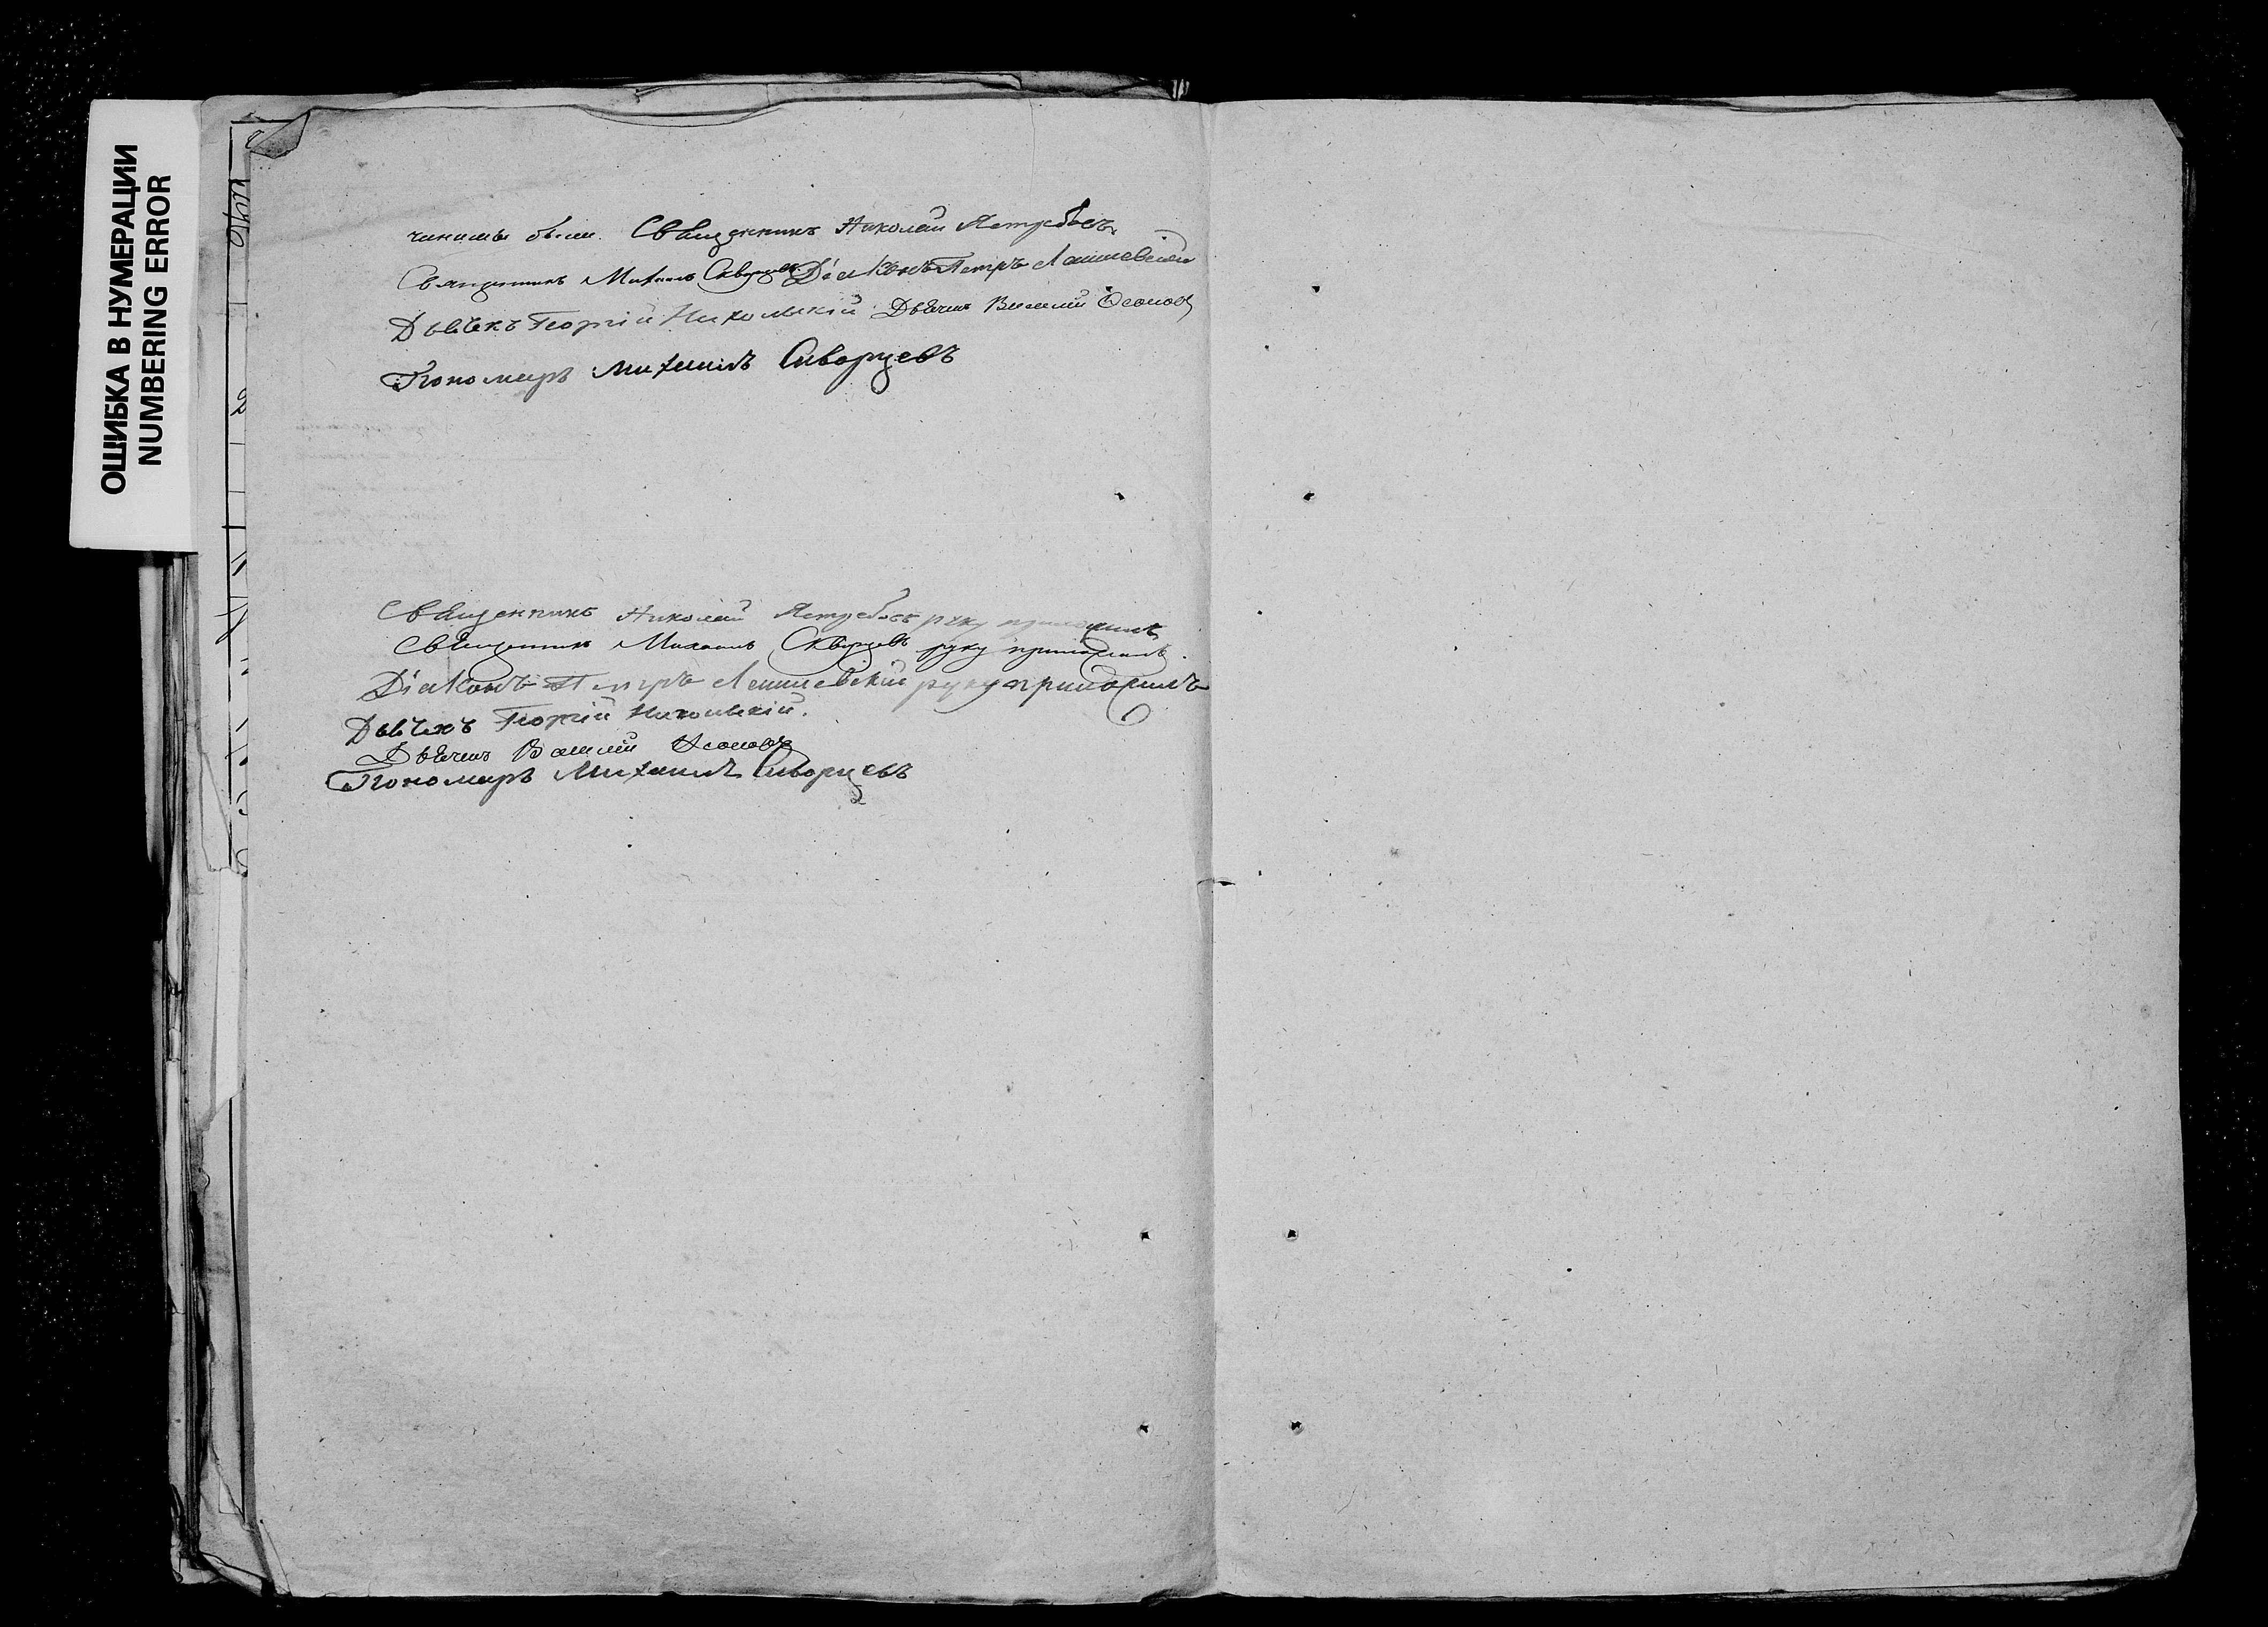 ОШИБКА В НУМЕРАЦИИ
NUMBERING ERROR
чинимы были. Священникъ Николай Ястребовъ
Священникъ Михаилъ Скворцовъ Діаконъ Петръ
Дьячекъ Георгій Никольскій Дьячекъ Василій
Пономарь Михаилъ Скворцевъ
Священникъ Николай Ястребовъ руку приложилъ
Священникъ Михаилъ Скворцовъ руку приложилъ.
Діаконъ Петръ руку приложилъ
Дьячекъ Георгій Никольскій.
Дьячекъ Василій
Пономарь Михаилъ Скворцевъ